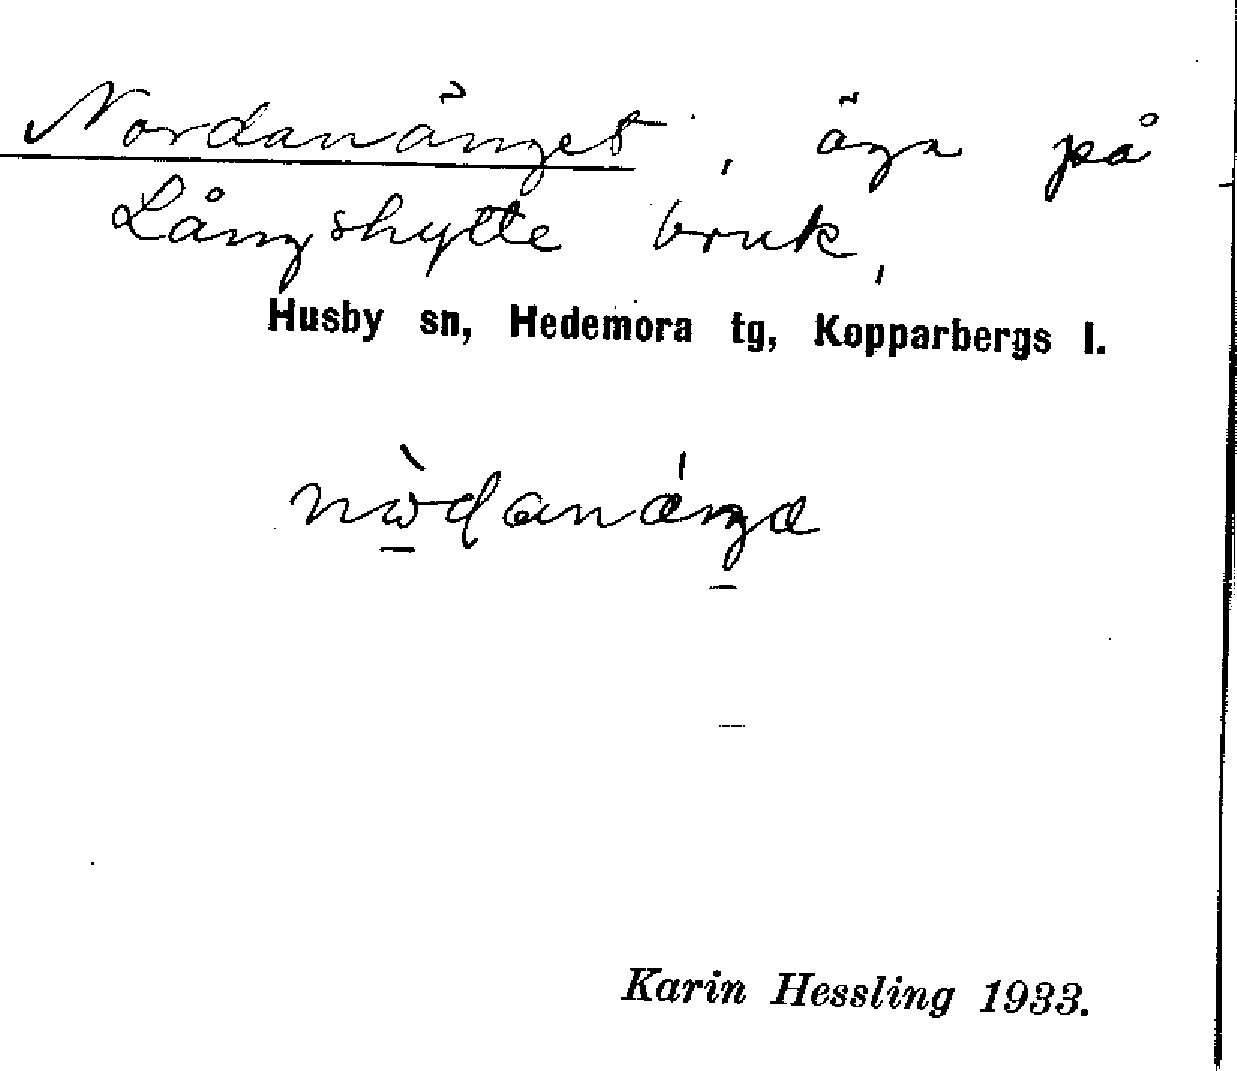 Nordanänget, äga på
Långshytte bruk,
Husby sn, Hedemora tg, Kopparbergs l.
nò̠danǽŋa
Karin Hessling 1933.